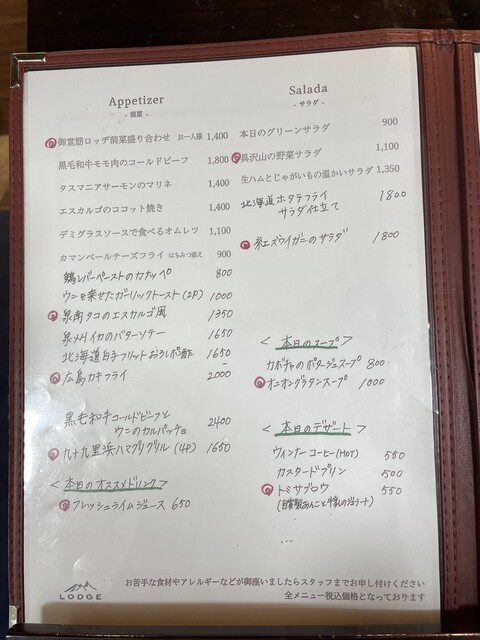 Appetizer
- 前菜 -
御堂筋ロッヂ前菜盛り合わせ お一人様 1,400
黒毛和牛モモ肉のコールドビーフ 1,800
タスマニアサーモンのマリネ 1,400
エスカルゴのココット焼き 1,400
デミグラスソースで食べるオムレツ 1,100
カマンベールチーズフライ はちみつ添え 900
鶏レバーペーストのカナッペ 800
ウニを乗せたガーリックトースト(2P) 1000
泉南タコのエスカルゴ風 1350
泉州イカのバターソテー 1650
北海道白子フリットおろしポン酢 1650
広島カキフライ 2000
黒毛和牛コールドビーフと
ウニのカルパッチョ 2400
九十九里浜ハマグリグリル(4P) 1650
<本日のオススメドリンク>
フレッシュライムジュース 650
Salada
- サラダ -
本日のグリーンサラダ 900
具沢山の野菜サラダ 1,100
生ハムとじゃがいもの温かいサラダ 1,350
北海道ホタテフライ
サラダ仕立て 1800
紅ズワイガニのサラダ 1800
<本日のスープ>
カボチャのポタージュスープ 800
オニオングラタンスープ 1000
<本日のデザート>
ウィンナーコーヒー(HOT) 550
カスタードプリン 500
トミサグロウ 550
(自家製あんこと牛乳の
...
LODGE
お苦手な食材やアレルギーなどが御座いましたらスタッフまでお申し付けください
全メニュー税込価格となっております